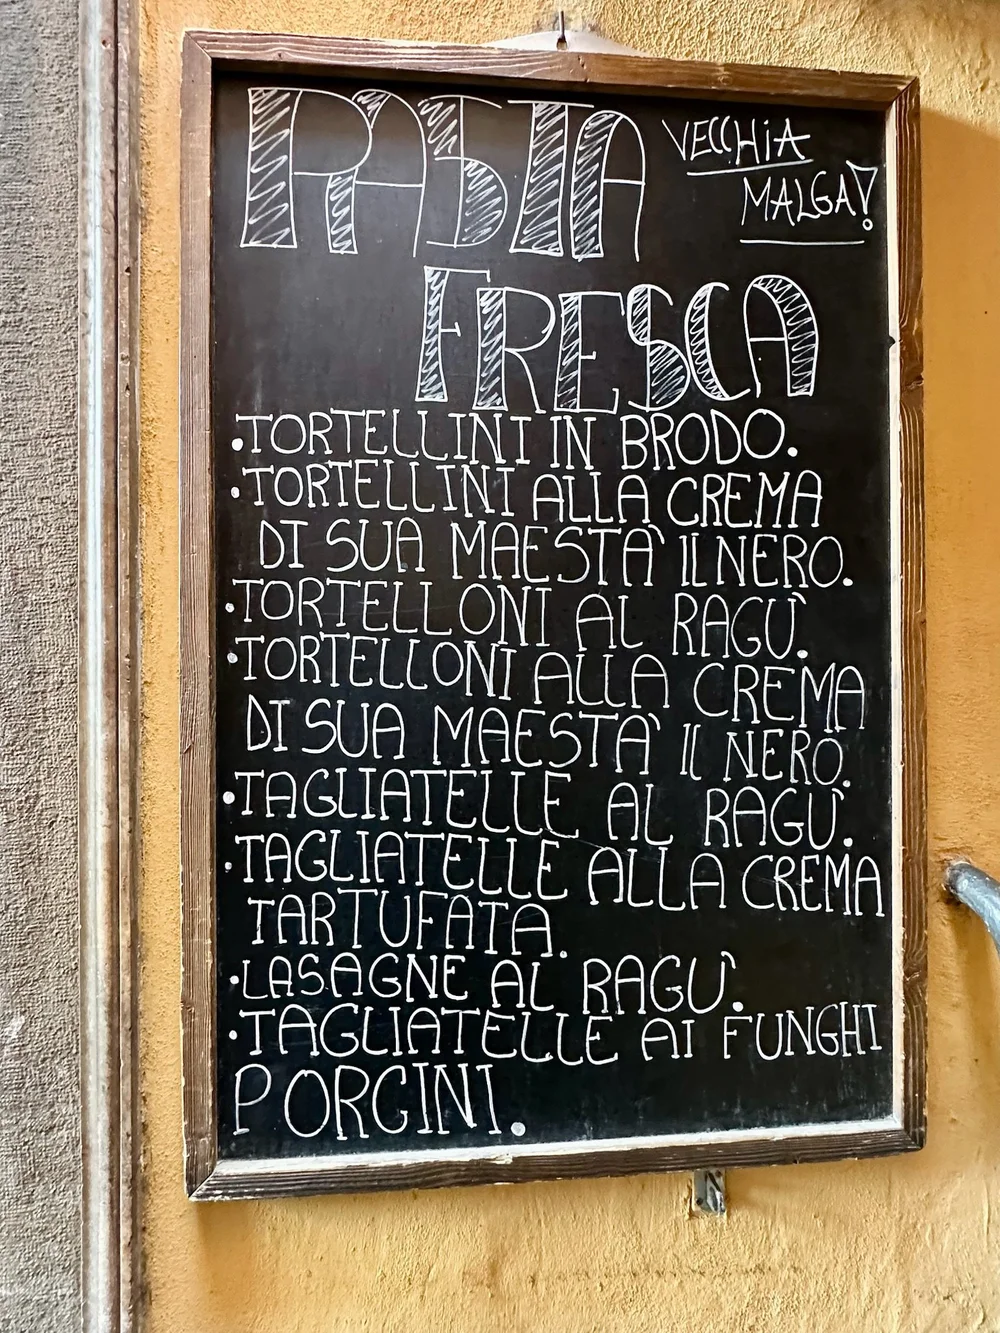 PASTA
VECCHiA
MALGA!
FRESCA
.TORTELLINI IN BRODO.
.TORTELLINI ALLA CREMA
DI SUA MAESTA' IL NERO.
.TORTELLONI AL RAGÙ.
.TORTELLONI ALLA CREMA
DI SUA MAESTA' IL NERO.
.TAGLIATELLE AL RAGÙ.
.TAGLIATELLE ALLA CREMA
TARTUFATA.
.LASAGNE AL RAGÙ.
.TAGLIATELLE AI FUNGHI
PORCINI.